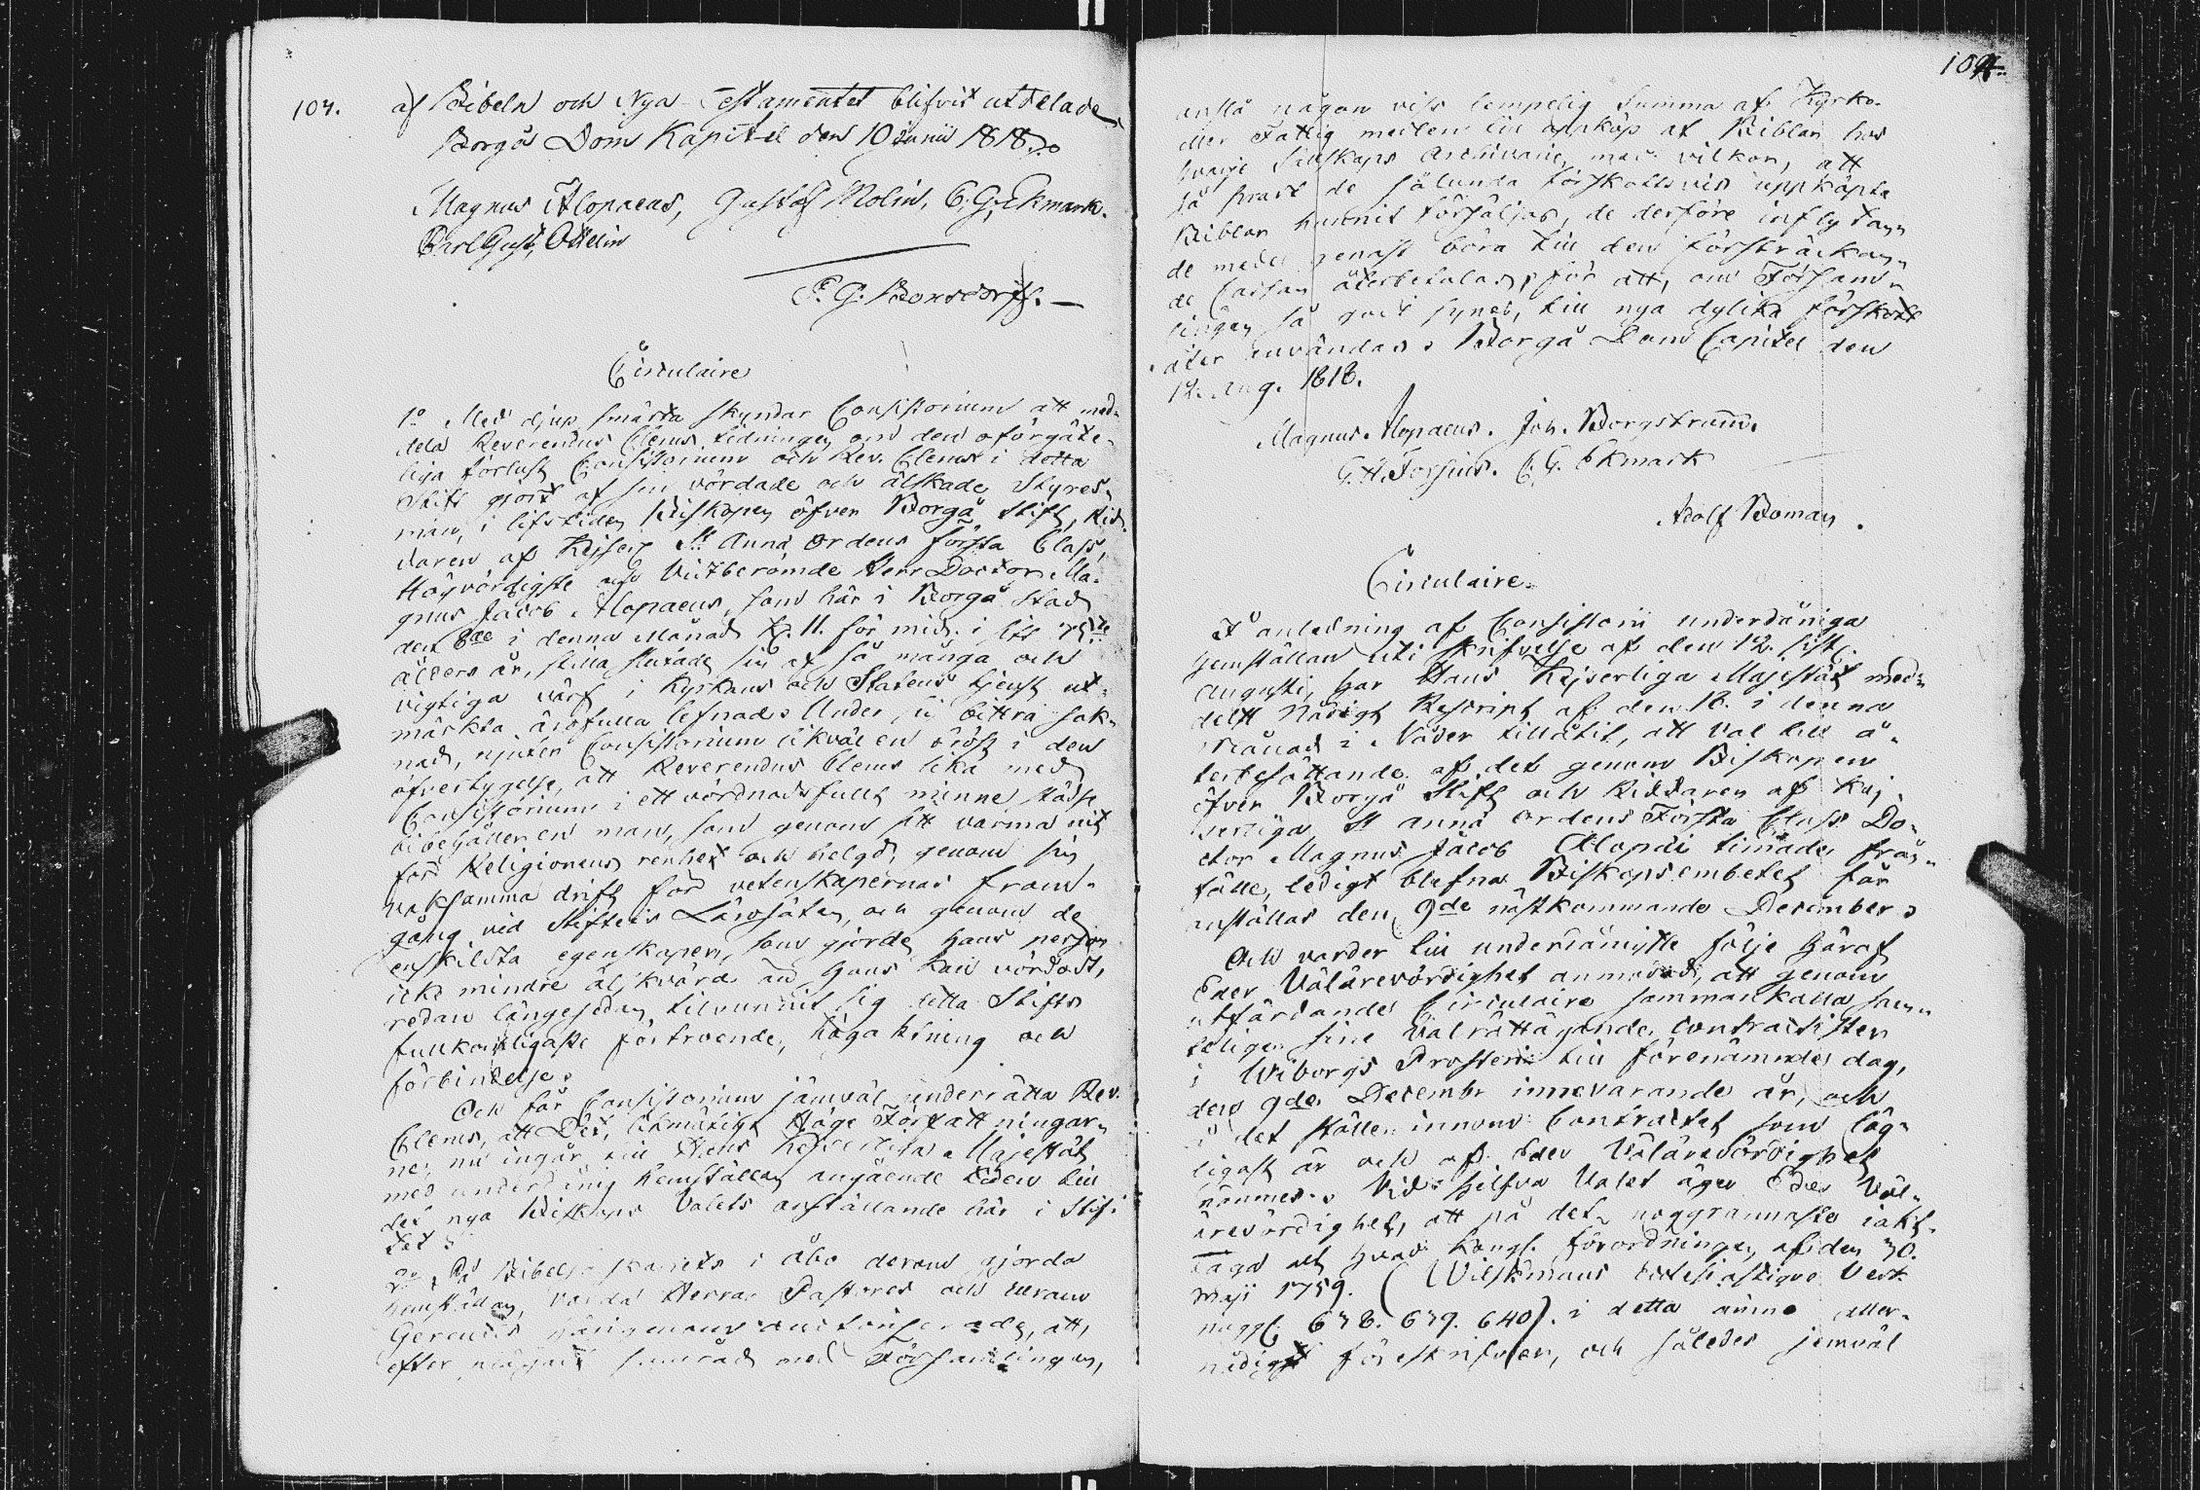 107.
af Bibeln och Nya Testamentet blifvit utdelade
Borgå Dom Kapitel den 10 Junii 1818.
Magnus Alopaeus, Gustaf Molin, C. G. Ekmark.
Carl Gust. Ottelin
F. G. Borsdorff.
Circulaire
1o Med djup smärta skyndar Consistorium att med-
dela Reverendus Clerus tidningen om den oförgäte-
liga förlust Consistorium och Rev. Clerus i detta
Stift gjort af sin vördade och älskade Styres-
man, i lifstiden Biskopen öfver Borgå Stift, Rid-
daren af Kejserl. St Anna Ordens första Class,
Högvördigste och Vidtberömde Herr Doctor Ma-
gnus Jacob Alopaeus, som här i Borgå Stad
den 8de i denna Månad Kl. 11. för mid. i sitt 75te
ålders år, stilla slutade sin af så många och
vigtiga värf i Kyrkans och Statens tjenst ut-
märkta ärofulla lefnad. Under sin bittra sak-
nad, njuter Consistorium likväl en tröst i den
öfvertygelse, att Reverendus Clerus lika med
Consistorium i ett vördnadsfullt minne städse
bibehåller en man, som genom sitt varma nit
för Religionens renhet och helgd, genom sin
verksamma drift för vetenskapernas fram-
gång vid Stiftets Lärosäten, och genom de
enskilda egenskaper, som gjorde hans person
icke mindre älskvärd än hans kall vördadt,
redan längesedan tilvunnit sig detta Stifts
fullkomligaste förtroende, högaktning och
förbindelse.
Och får Consistorium jämväl underrätta Rev.
Clerus, att Det, likmätigt Höge Författningar-
ne, nu ingår till Hans Kejserliga Majestät
med underdånig hemställan angående tiden till
det nya Biskops Valets anställande här i Stif-
tet.
2o På Bibelsällskapets i Åbo derom gjorda
hemställan, varda Herrar Pastores och deras
Gerentes härigenom anmodade, att,
efter samråd med Församlingen,
109.
anslå någon viss lempelig Summa af Kyrko-
eller Fattig medlen till uppköp af Biblar hos
hvarje Sällskaps Archivarie, med vilkor, att
så snart de sålunda förskottsvis uppköpta
Biblar hunnit försäljas, de derföre inflytan-
de medel genast böra till den försträckan-
de Cassan återbetalas, för att, om Försam-
lingen så godt synes, till nya dylika förskott
åter användas. Borgå Dom Capitel den
12. Aug. 1818.
Magnus Alopaeus. Joh. Borgström.
G. H. Forsius. C. G. Ekmark
Adolf Boman.
Circulaire.
I anledning af Consistorii underdåniga
hemställan uti skrifvelse af den 12. sistl.
Augusti, har Hans Kejserliga Majestät med-
delst Nådigt Rescript af den 18. i denna
Månad i Nåder tillåtit, att val till å-
terbesättande af det genom Biskopens
öfver Borgå Stift och Riddaren af Kej-
serliga St Anna Ordens Första Class Do-
ctor Magnus Jacob Alopæi timade från-
fälle, ledigt blefna Biskopsembetet får
anställas den 9de nästkommande December.
Och varder till underdånigste följe häraf
Eder Välärevördighet anmodad, att genom
utfärdande Circulaire sammankalla sam-
teligen sine Valrättägande Contractister
i Wiborgs Prosteri till förenämnde dag,
den 9de Decembr innevarande år, och
å det ställe innom Contractet som läg-
ligast är och af Eder Välärevördighet
nämnes. Vid sjelfva Valet äger Eder Väl-
ärevördighet, att på det noggrannaste iakt-
taga alt hvad Kongl. förordningen af den 30.
Maji 1759. (Wilskmans Ecclesiastique Verk
pagg. 638. 639. 640). i detta ämne aller-
nådigst föreskrifver, och således jemväl